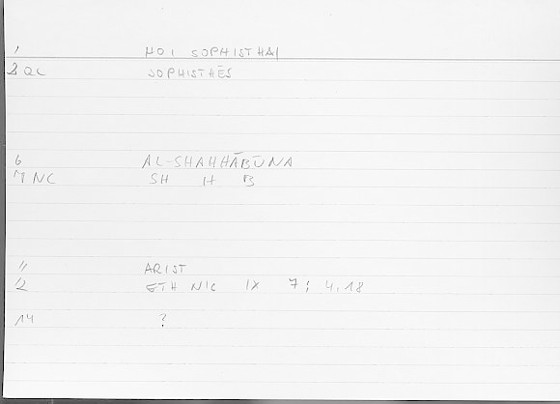 1 HOI SOPHISTHAI
2 QC SOPHISTĒS
6 AL-SHAHHĀBŪNA
7 NC SH H B
11 ARIST
12 ETH NIC IX 7; 4.18
14 ?